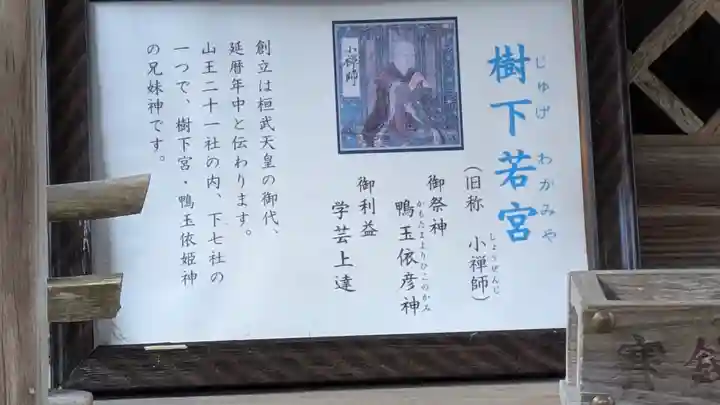 じゅげ わかみや
樹下若宮
しょうぜんじ
(旧称 小禅師)
御祭神
かもたまよりひこのかみ
鴨玉依彦神
御利益
学芸上達
小禅師
創立は桓武天皇の御代、
延暦年中と伝わります。
山王二十一社の内、下七社の
一つで、樹下宮・鴨玉依姫神
の兄妹神です。